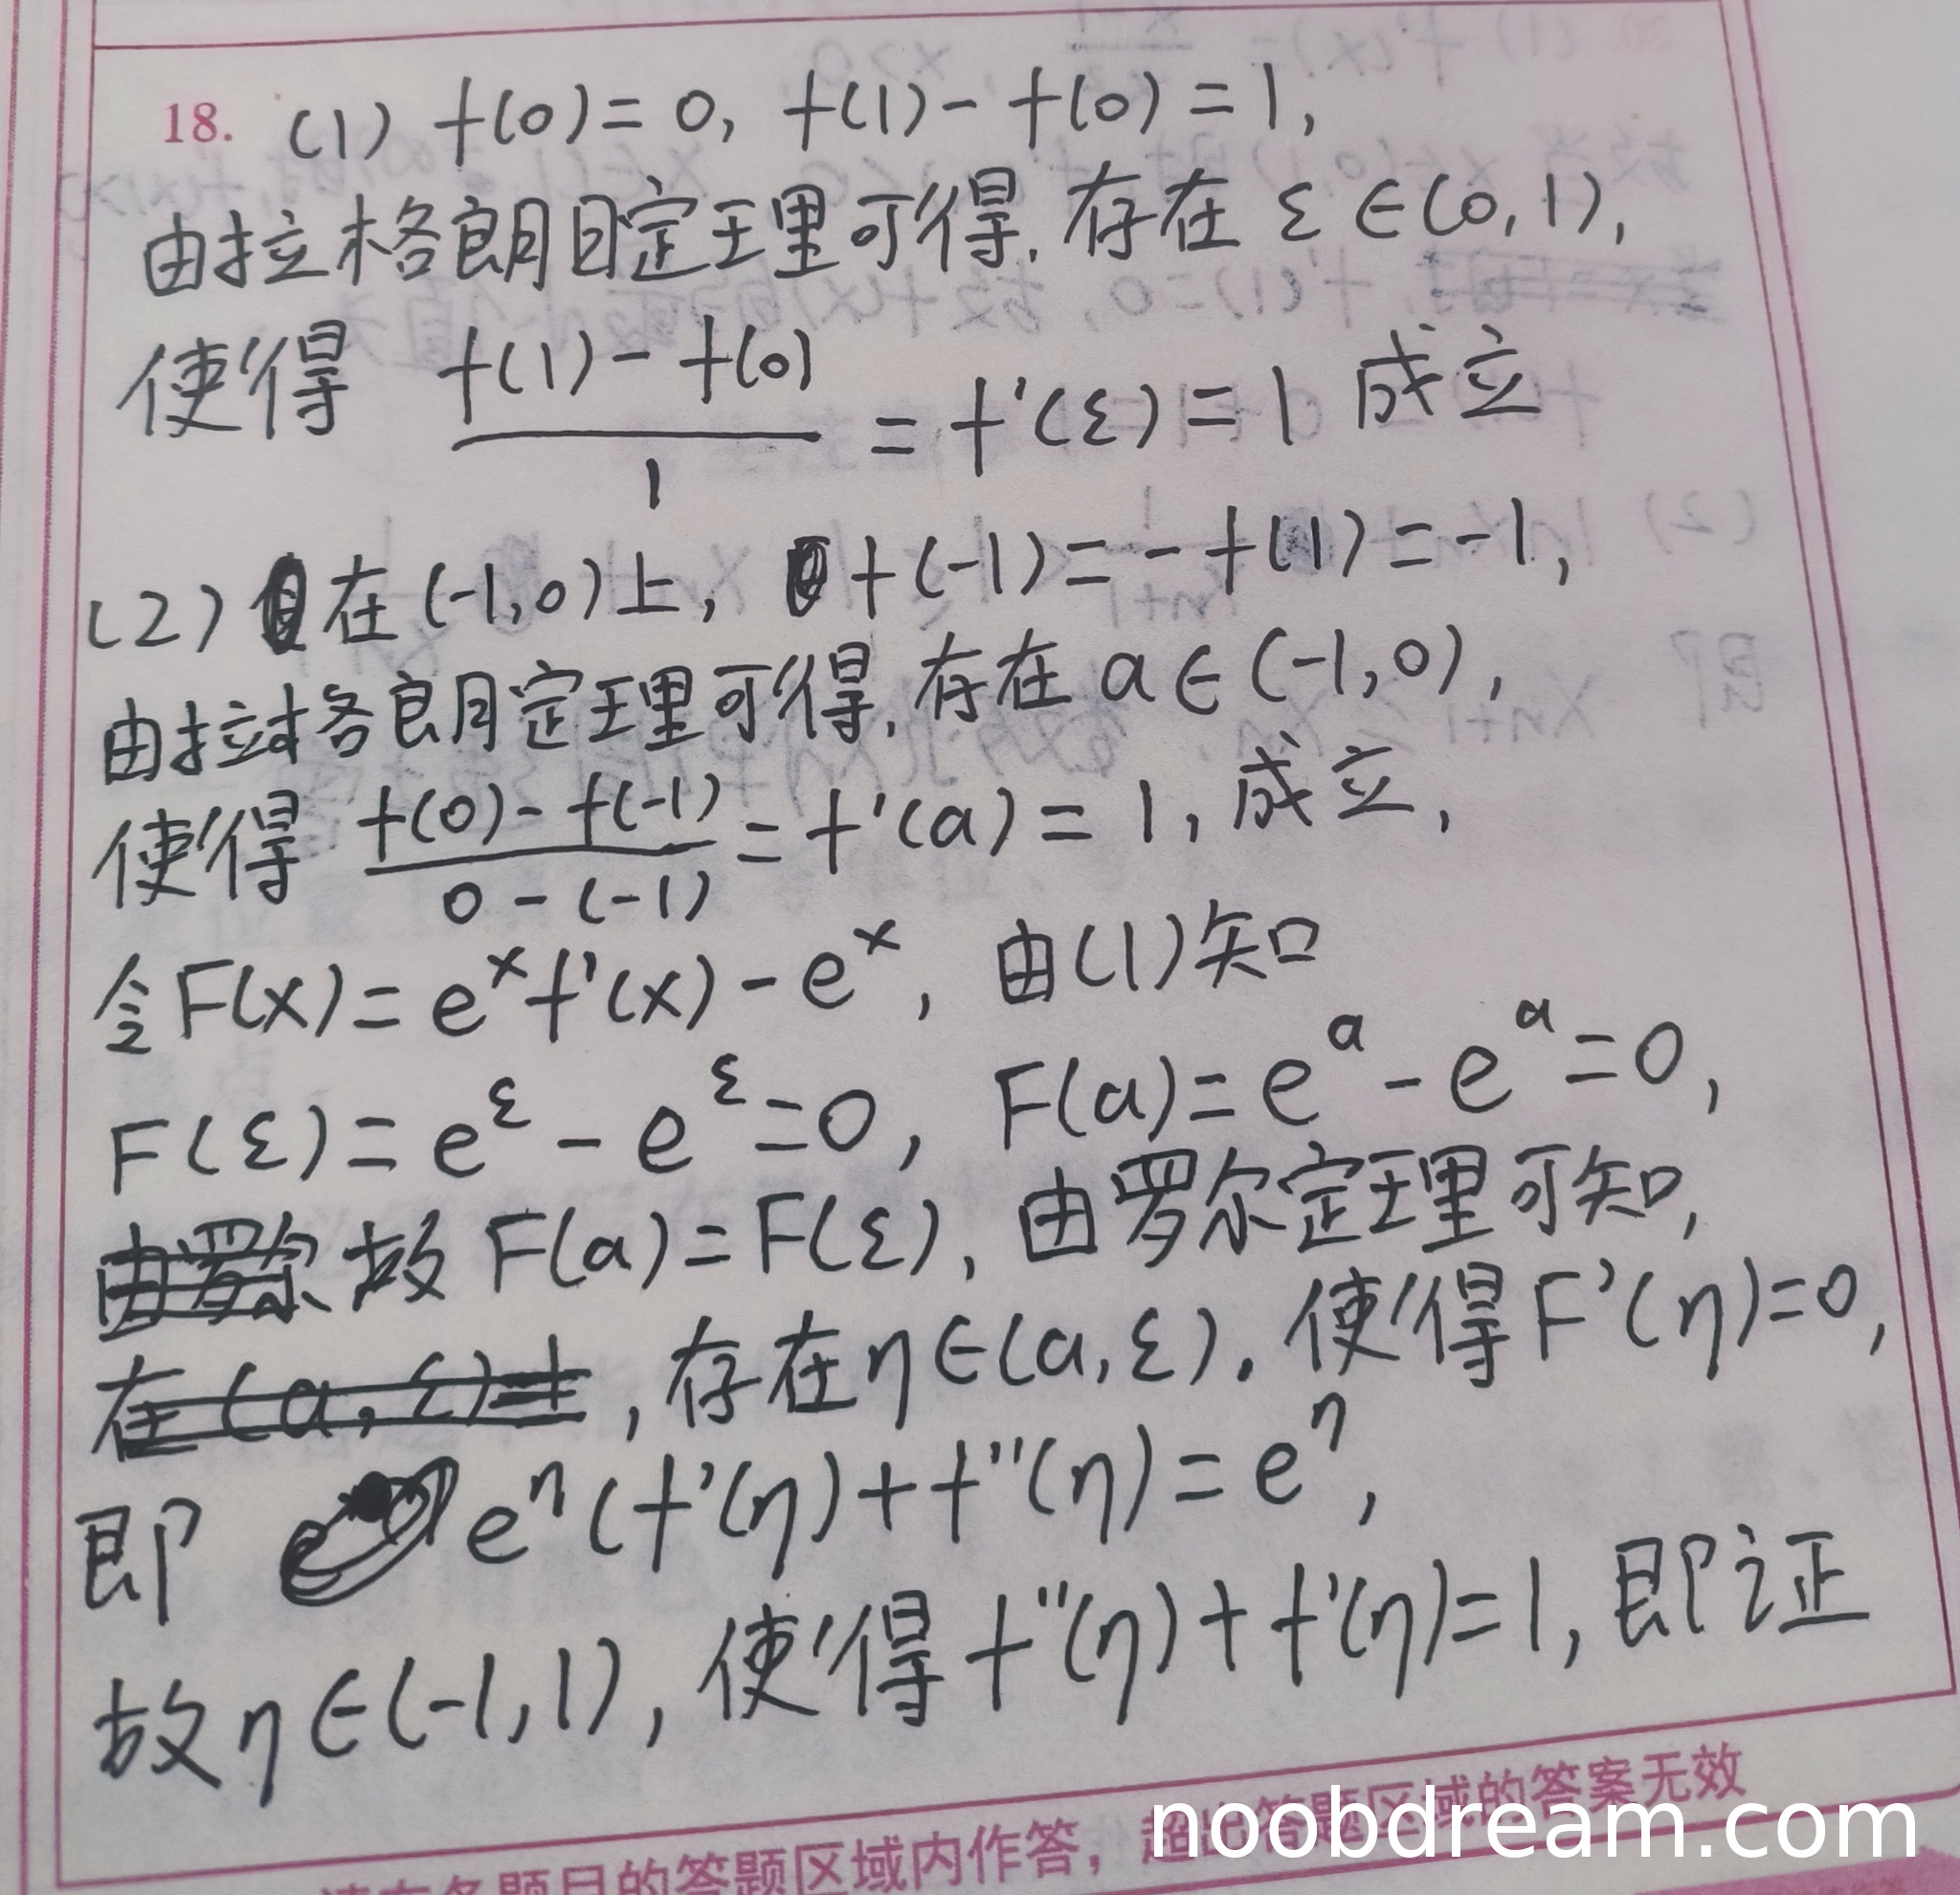 18. (1) f(0)=0, f(1)-f(0)=1,
由拉格朗日定理可得,存在 ξ∈(0,1),
使得 \frac{f(1)-f(0)}{1} = f'(ξ)=1 成立
(2) 在(-1,0)上, f(-1)=-f(1)=-1,
由拉格朗定理可得,存在 a∈(-1,0),
使得 \frac{f(0)-f(-1)}{0-(-1)} = f'(a)=1, 成立,
令F(x)=e^x f'(x)-e^x, 由(1)知
F(ξ)=e^ξ-e^ξ=0, F(a)=e^a-e^a=0,
由罗尔 故F(a)=F(ξ), 由罗尔定理可知,
在(a,ξ)上, 存在η∈(a,ξ).使得F'(η)=0,
即 e^η(f'(η)+f''(η)=e^η,
故η∈(-1,1), 使得f''(η)+f'(η)=1, 即证
请在各题目的答题区域内作答，超出答题区域的答案无效
noobdream.com